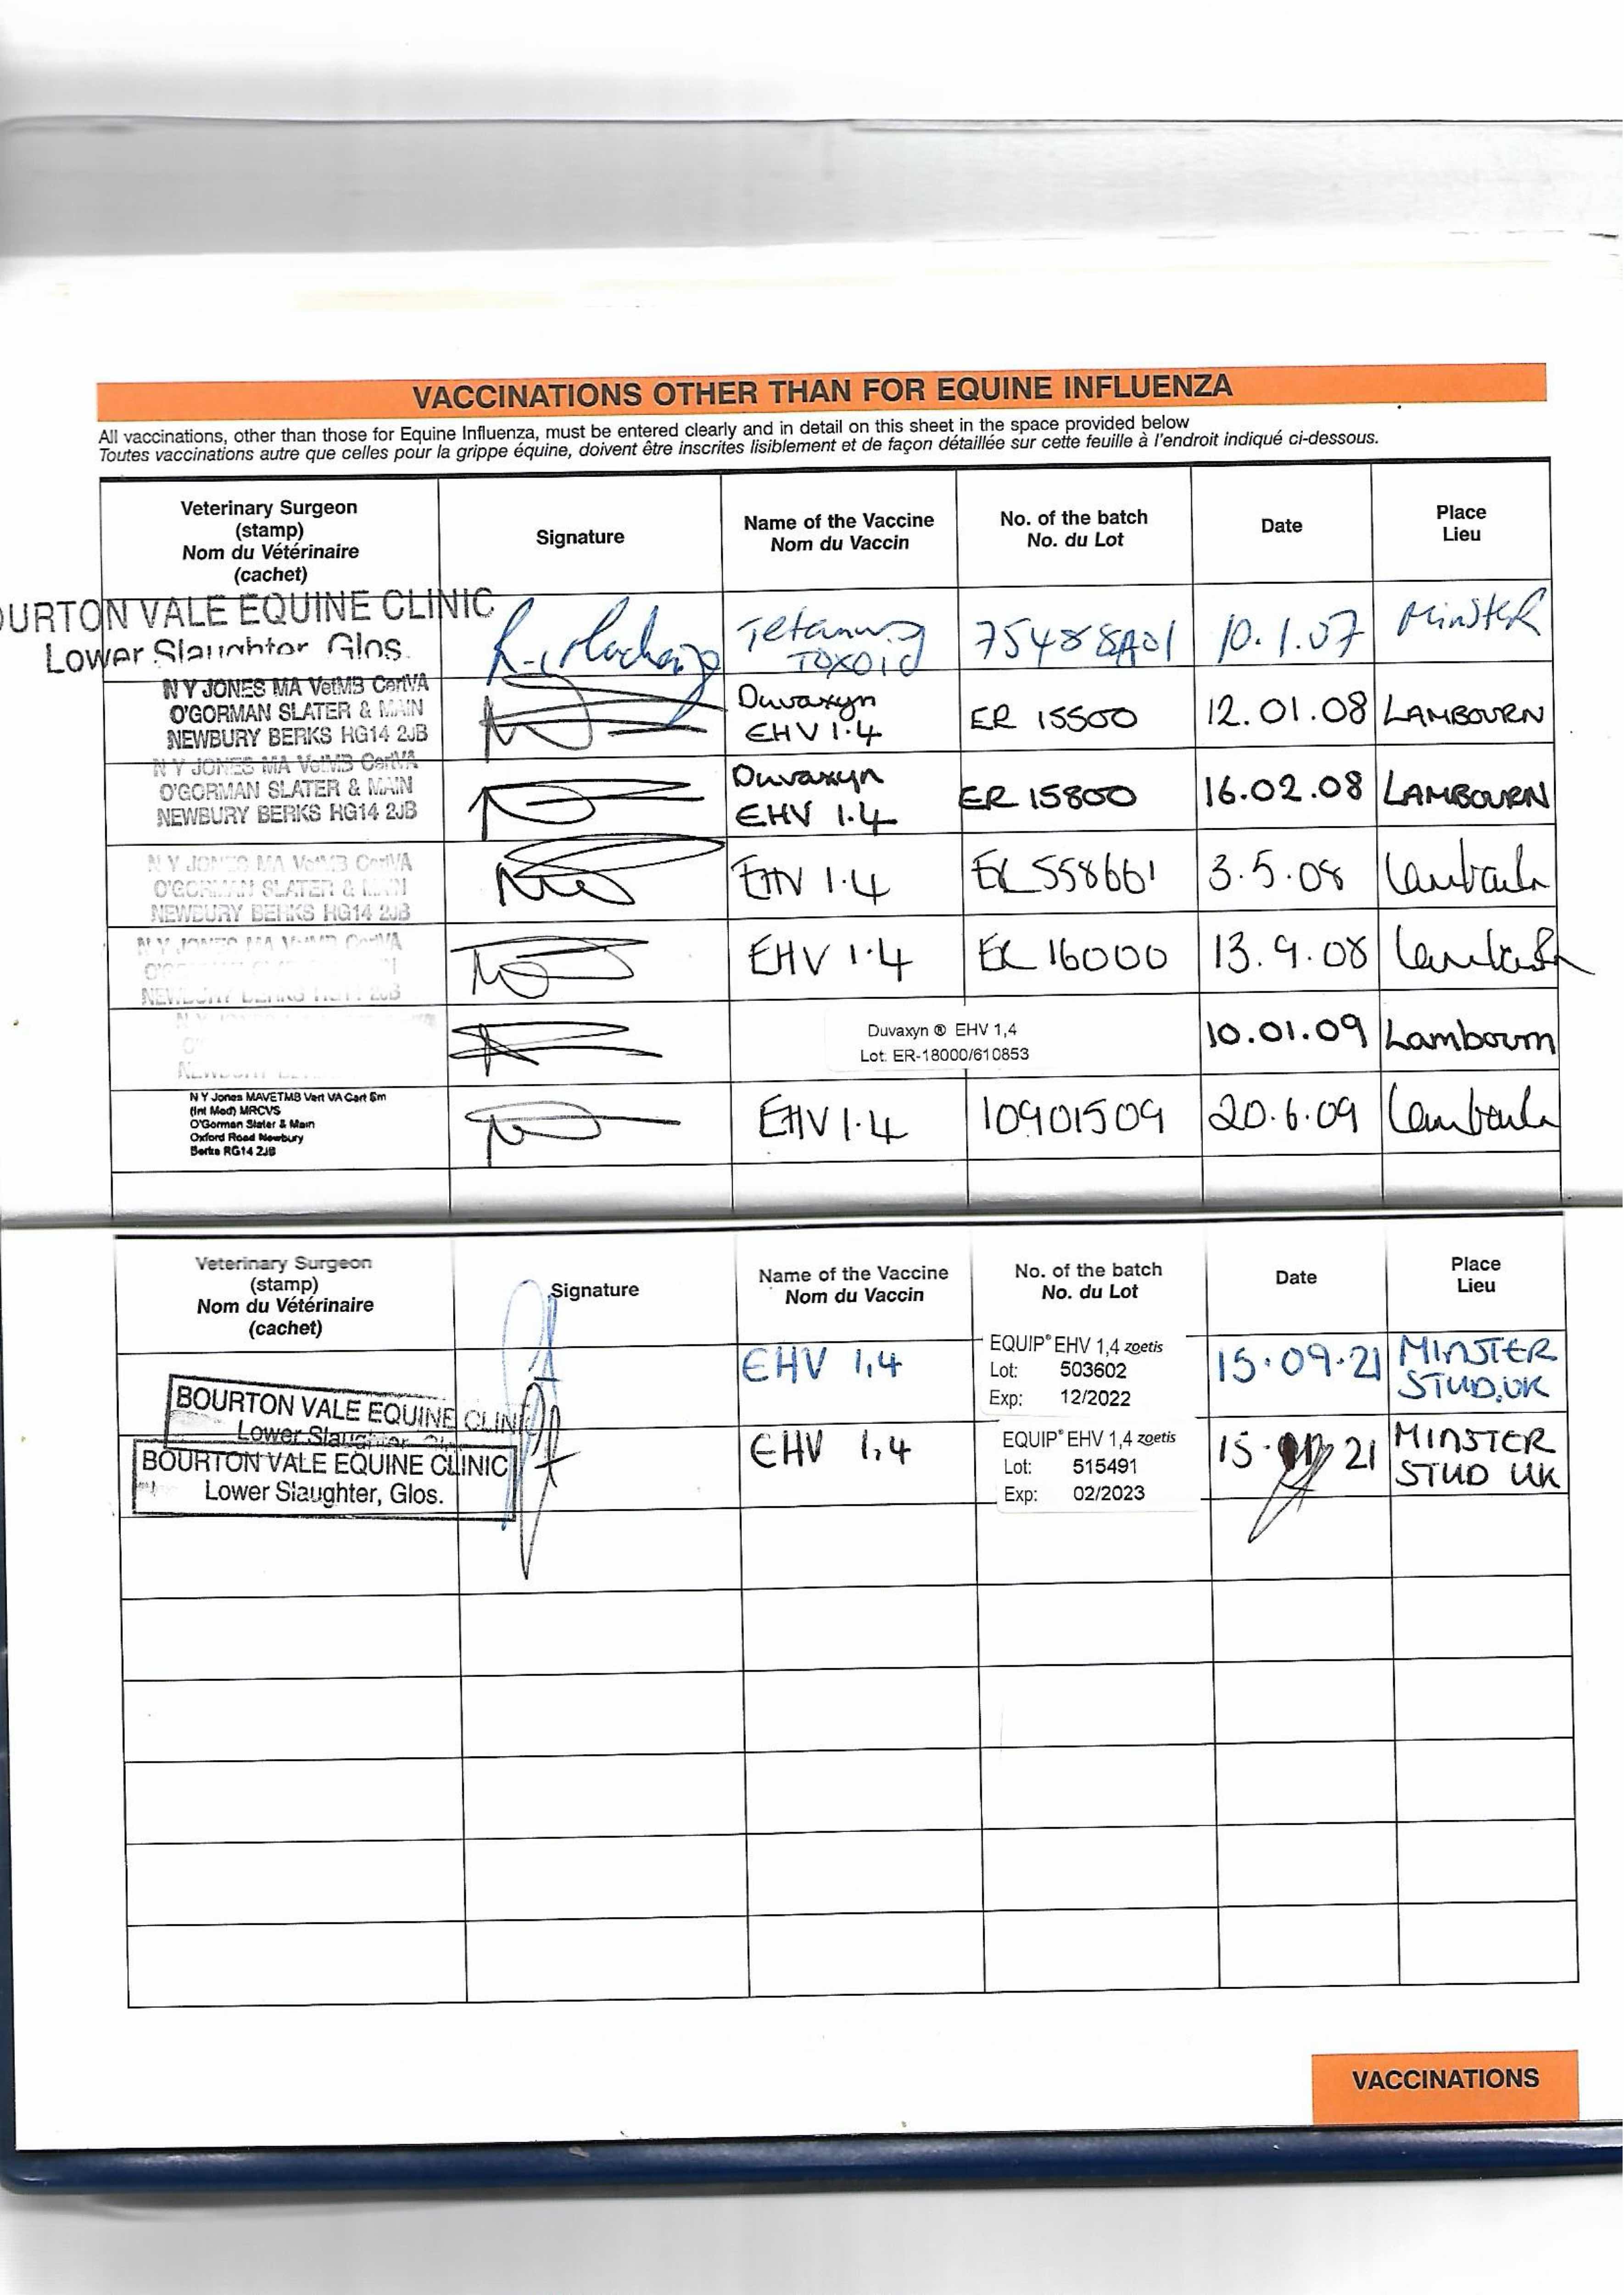 VACCINATIONS OTHER THAN FOR EQUINE INFLUENZA
All vaccinations, other than those for Equine Influenza, must be entered clearly and in detail on this sheet in the space provided below
Toutes vaccinations autre que celles pour la grippe équine, doivent être inscrites lisiblement et de façon détaillée sur cette feuille à l'endroit indiqué ci-dessous.
Veterinary Surgeon
(stamp)
Nom du Vétérinaire
(cachet)
Signature
Name of the Vaccine
Nom du Vaccin
No. of the batch
No. du Lot
Date
Place
Lieu
OURTON VALE EQUINE CLINIC
Lower Slaughter Glos.
Tetanus
TOXOID
75488A01
10.1.07
Minster
N Y JONES MA VetMB CertVA
O'GORMAN SLATER & MAIN
NEWBURY BERKS HG14 2JB
Duvaxyn
EHV 1.4
ER 15500
12.01.08
LAMBOURN
N Y JONES MA VetMB CertVA
O'GORMAN SLATER & MAIN
NEWBURY BERKS HG14 2JB
Duvaxyn
EHV 1.4
ER 15800
16.02.08
LAMBOURN
N Y JONES MA VetMB CertVA
O'GORMAN SLATER & MAIN
NEWBURY BERKS HG14 2JB
EHV 1.4
558661
3.5.08
N Y JONES MA VetMB CertVA
EHV 1.4
16000
13.9.08
Duvaxyn ® EHV 1,4
Lot: ER-18000/610853
10.01.09
Lambourn
N Y Jones MAVETMB Vert VA Cert Sm
(Int Med) MRCVS
O'Gorman Slater & Main
Oxford Road Newbury
Berks RG14 2JB
EHV 1.4
10901509
20.6.09
Veterinary Surgeon
(stamp)
Nom du Vétérinaire
(cachet)
Signature
Name of the Vaccine
Nom du Vaccin
No. of the batch
No. du Lot
Date
Place
Lieu
BOURTON VALE EQUINE CLINI
Lower Slaughter
EHV 1,4
EQUIP® EHV 1,4 zoetis
Lot: 503602
Exp: 12/2022
15.09.21
MINSTER
STUD.UK
BOURTON VALE EQUINE CLINIC
Lower Slaughter, Glos.
EHV 1,4
EQUIP® EHV 1,4 zoetis
Lot: 515491
Exp: 02/2023
15. 21
MINSTER
STUD UK
VACCINATIONS